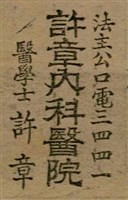 法主公口電三四四一
許章內科醫院
醫學士 許章